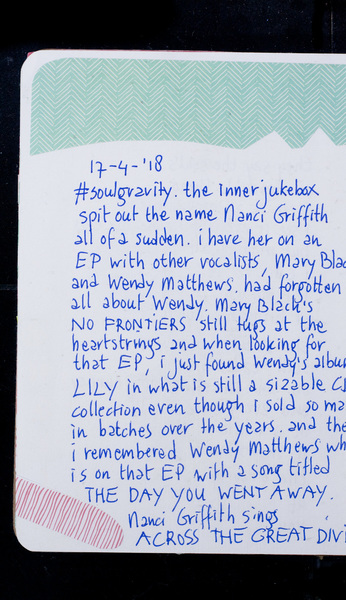 17-4-'18
#soulgravity. the inner jukebox
spit out the name Nanci Griffith
all of a sudden. i have her on an
EP with other vocalists, Mary Blac
and Wendy Matthews. had forgotten
all about Wendy. Mary Black's
NO FRONTIERS still tugs at the
heartstrings and when looking for
that EP, i just found Wendy's albu
LILY in what is still a sizable C
collection even though i sold so ma
in batches over the years. and the
i remembered Wendy Matthews wh
is on that EP with a song titled
THE DAY YOU WENT AWAY.
Nanci Griffith sings
ACROSS THE GREAT DIVI